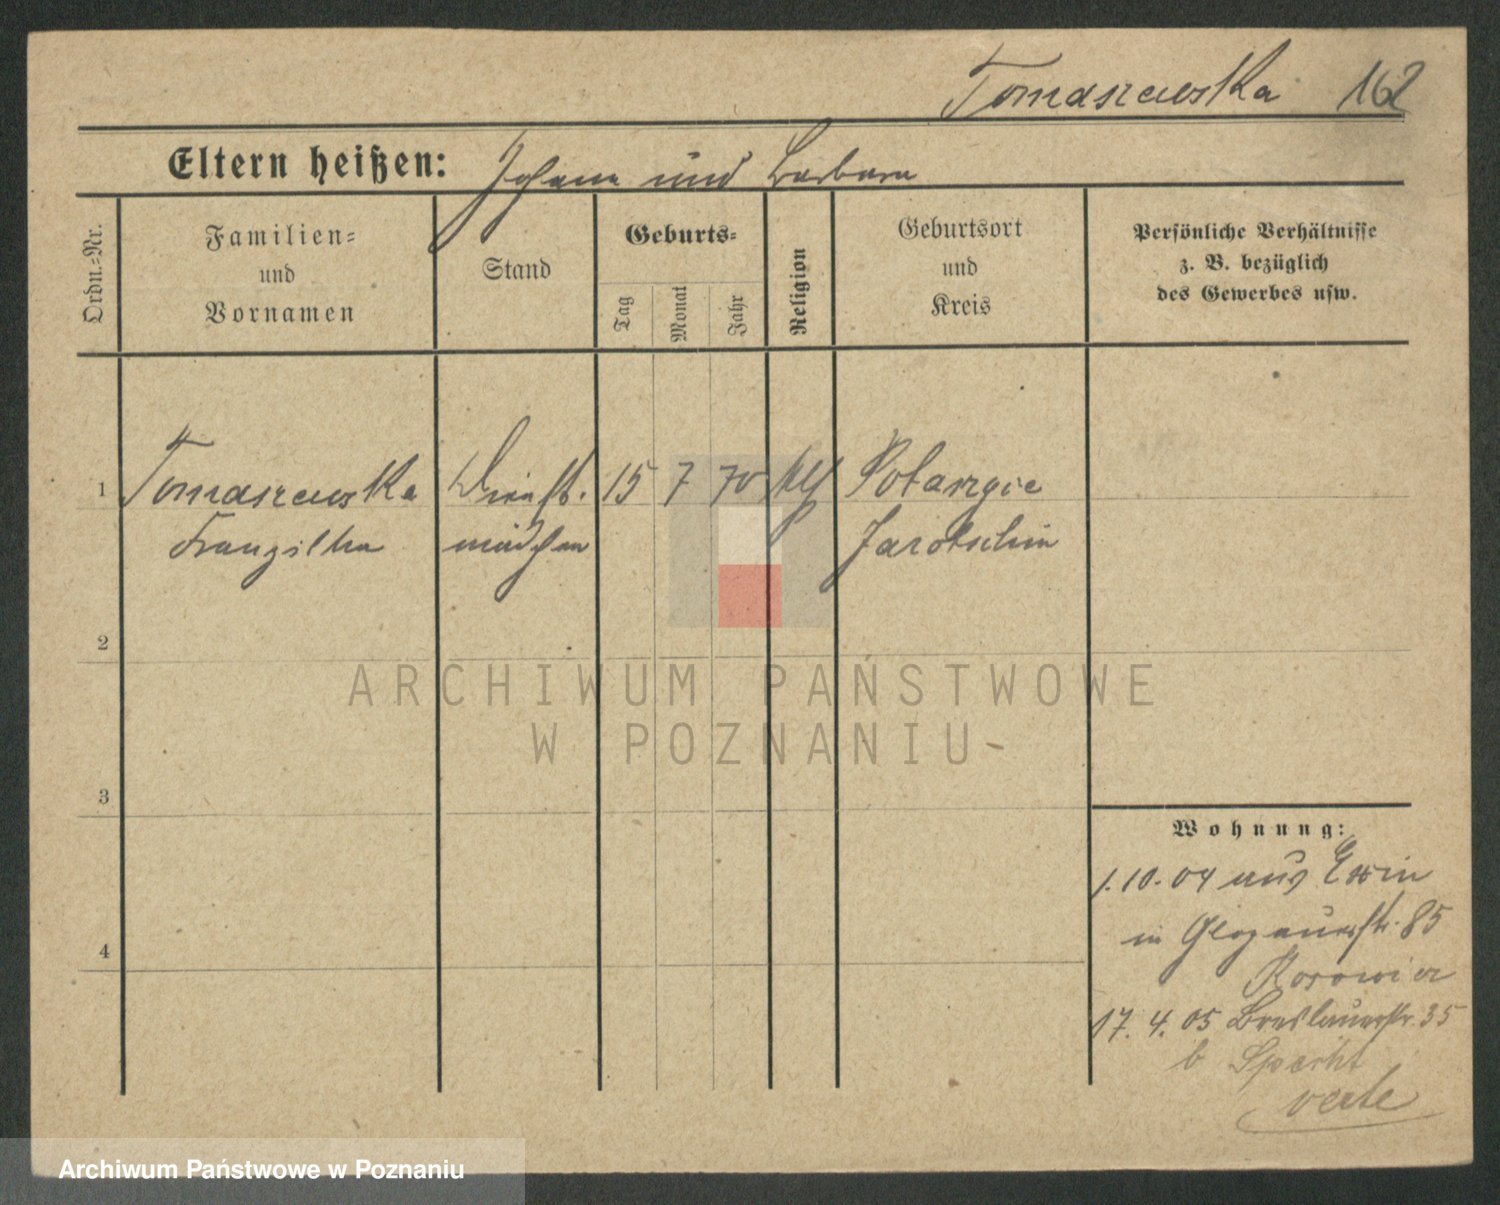 Tomaszewska 162
Eltern heißen: Johann und Barbara
Ordn.-Nr.
Familien-
und
Vornamen
Stand
Geburts-
Tag
Monat
Jahr
Religion
Geburtsort
und
Kreis
Persönliche Verhältnisse
z. B. bezüglich
des Gewerbes usw.
1 Tomaszewska Dienst- 15 7 70 Potarzyce
mädchen Jarotschin
2
3
4
ARCHIWUM PAŃSTWOWE
W POZNANIU
Wohnung:
1. 10. 04 aus Exin
in Glogauerstr. 85
17. 4. 05 Breslauerstr. 35
b Specht
verte
Archiwum Państwowe w Poznaniu